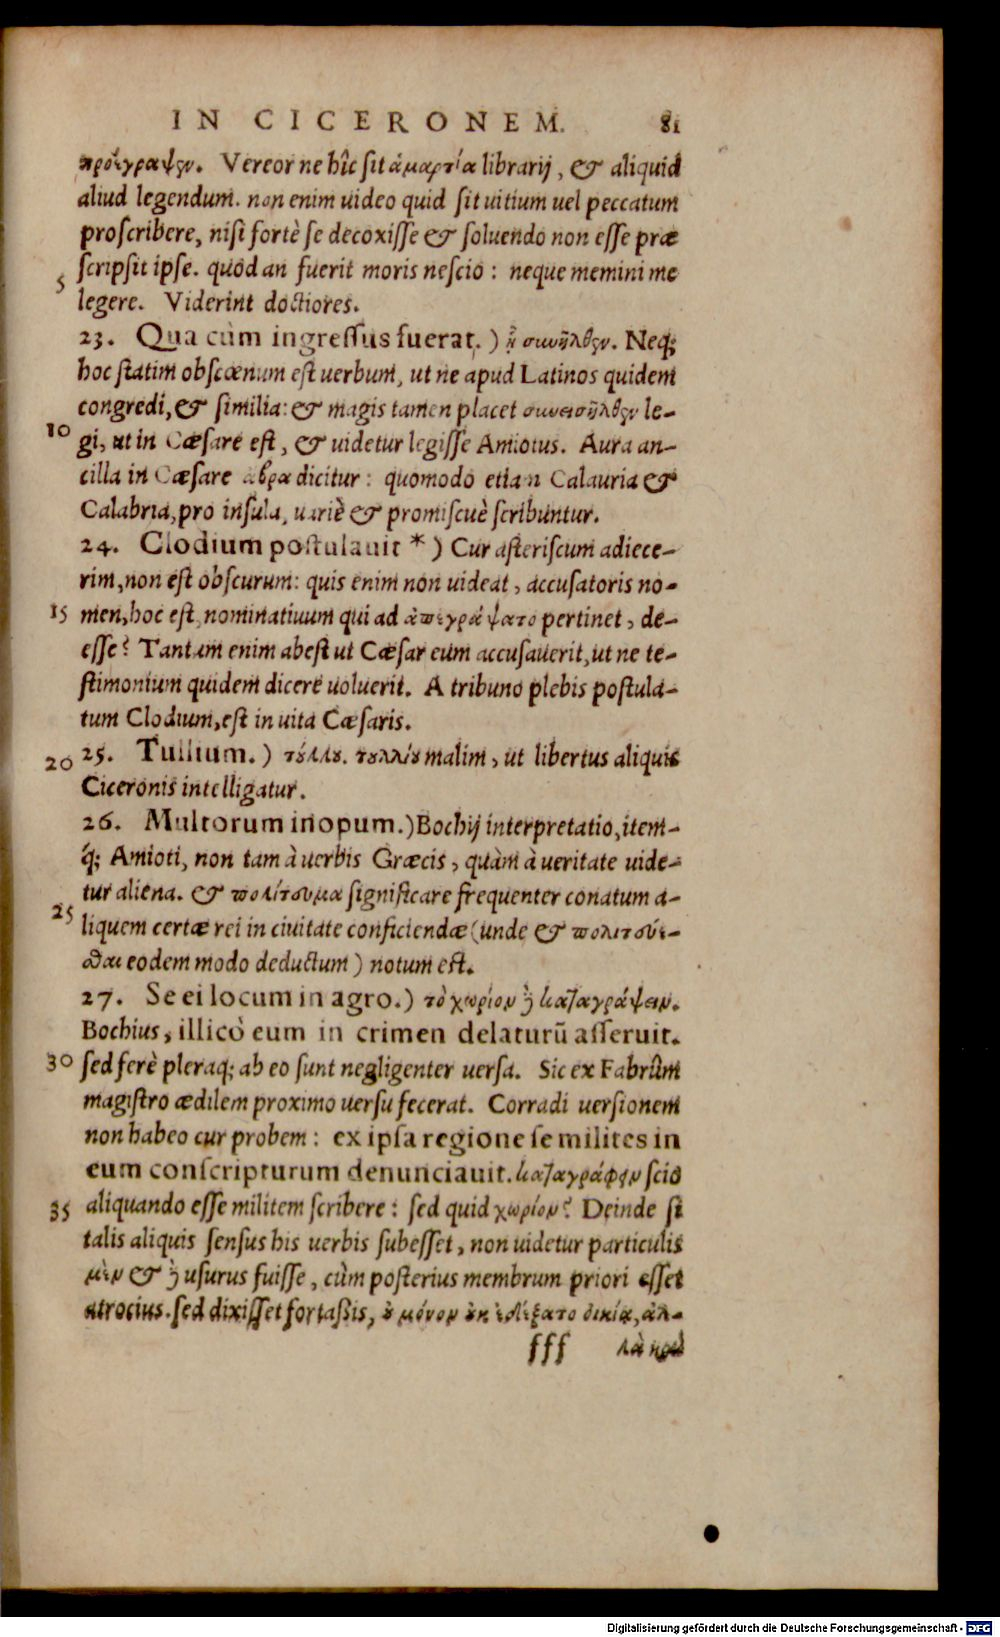 IN CICERONEM. 81
προέγραψεν. Vereor ne hîc sit ἁμαρτία librarij, & aliquid
aliud legendum. non enim uideo quid sit uitium uel peccatum
proscribere, nisi fortè se decoxisse & soluendo non esse præ
5 scripsit ipse. quod an fuerit moris nescio: neque memini me
legere. Viderint doctiores.
23. Qua cùm ingressus fuerat.) ᾗ συνῆλθεν. Neq;
hoc statim obscœnum est uerbum, ut ne apud Latinos quidem
congredi, & similia: & magis tamen placet συνεισῆλθεν le-
10 gi, ut in Cæsare est, & uidetur legisse Amiotus. Aura an-
cilla in Cæsare ἄβρα dicitur: quomodo etiam Calauria &
Calabria, pro insula, uariè & promiscuè scribuntur.
24. Clodium postulauit *) Cur asteriscum adiece-
rim, non est obscurum: quis enim non uideat, accusatoris no-
15 men, hoc est, nominatiuum qui ad ἀπεγράψατο pertinet, de-
esse? Tantum enim abest ut Cæsar eum accusauerit, ut ne te-
stimonium quidem dicere uoluerit. A tribuno plebis postula-
tum Clodium, est in uita Cæsaris.
20 25. Tullium.) τύλλου. τουλλίου malim, ut libertus aliquis
Ciceronis intelligatur.
26. Multorum inopum.) Bochij interpretatio, item-
q́; Amioti, non tam à uerbis Græcis, quàm à ueritate uide-
tur aliena. & πολίτευμα significare frequenter conatum a-
25 liquem certæ rei in ciuitate conficiendæ (unde & πολιτεύε-
σθαι eodem modo deductum) notum est.
27. Se ei locum in agro.) τὸ χωρίον ἢ καταγράψειν.
Bochius, illicò eum in crimen delaturũ asseruit.
30 sed ferè pleraq; ab eo sunt negligenter uersa. Sic ex Fabrûm
magistro ædilem proximo uersu fecerat. Corradi uersionem
non habeo cur probem: ex ipsa regione se milites in
eum conscripturum denunciauit. καταγράφειν scio
35 aliquando esse militem scribere: sed quid χωρίον? Deinde si
talis aliquis sensus his uerbis subesset, non uidetur particulis
μὲν & ἢ usurus fuisse, cùm posterius membrum priori esset
atrocius. sed dixisset fortaßis, οὐ μόνον οὐκ ἐδέξατο οἰκίᾳ, ἀλ-
fff λὰ καὶ
Digitalisierung gefördert durch die Deutsche Forschungsgemeinschaft - DFG